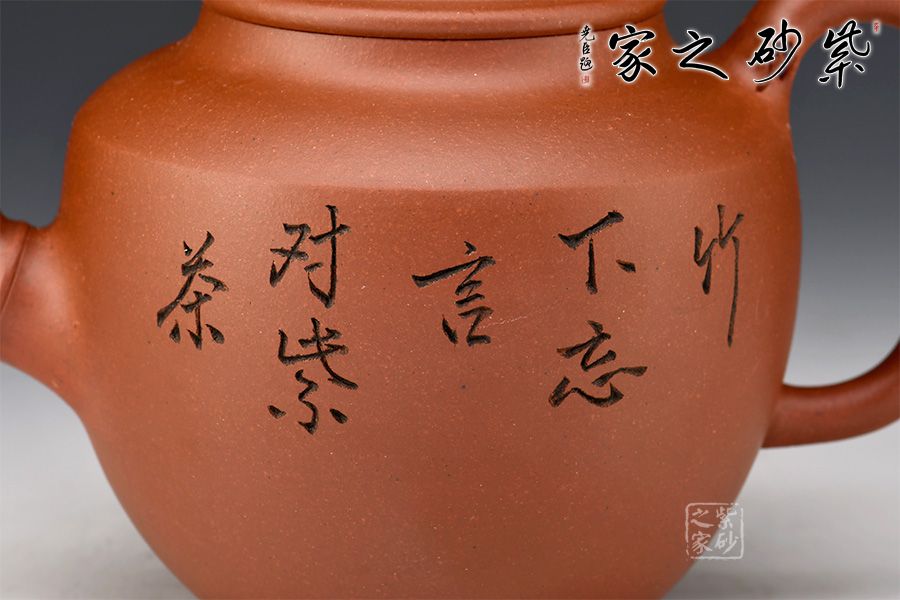 紫砂之家
尧臣题
竹
下忘
言
对紫
茶
紫砂
之家